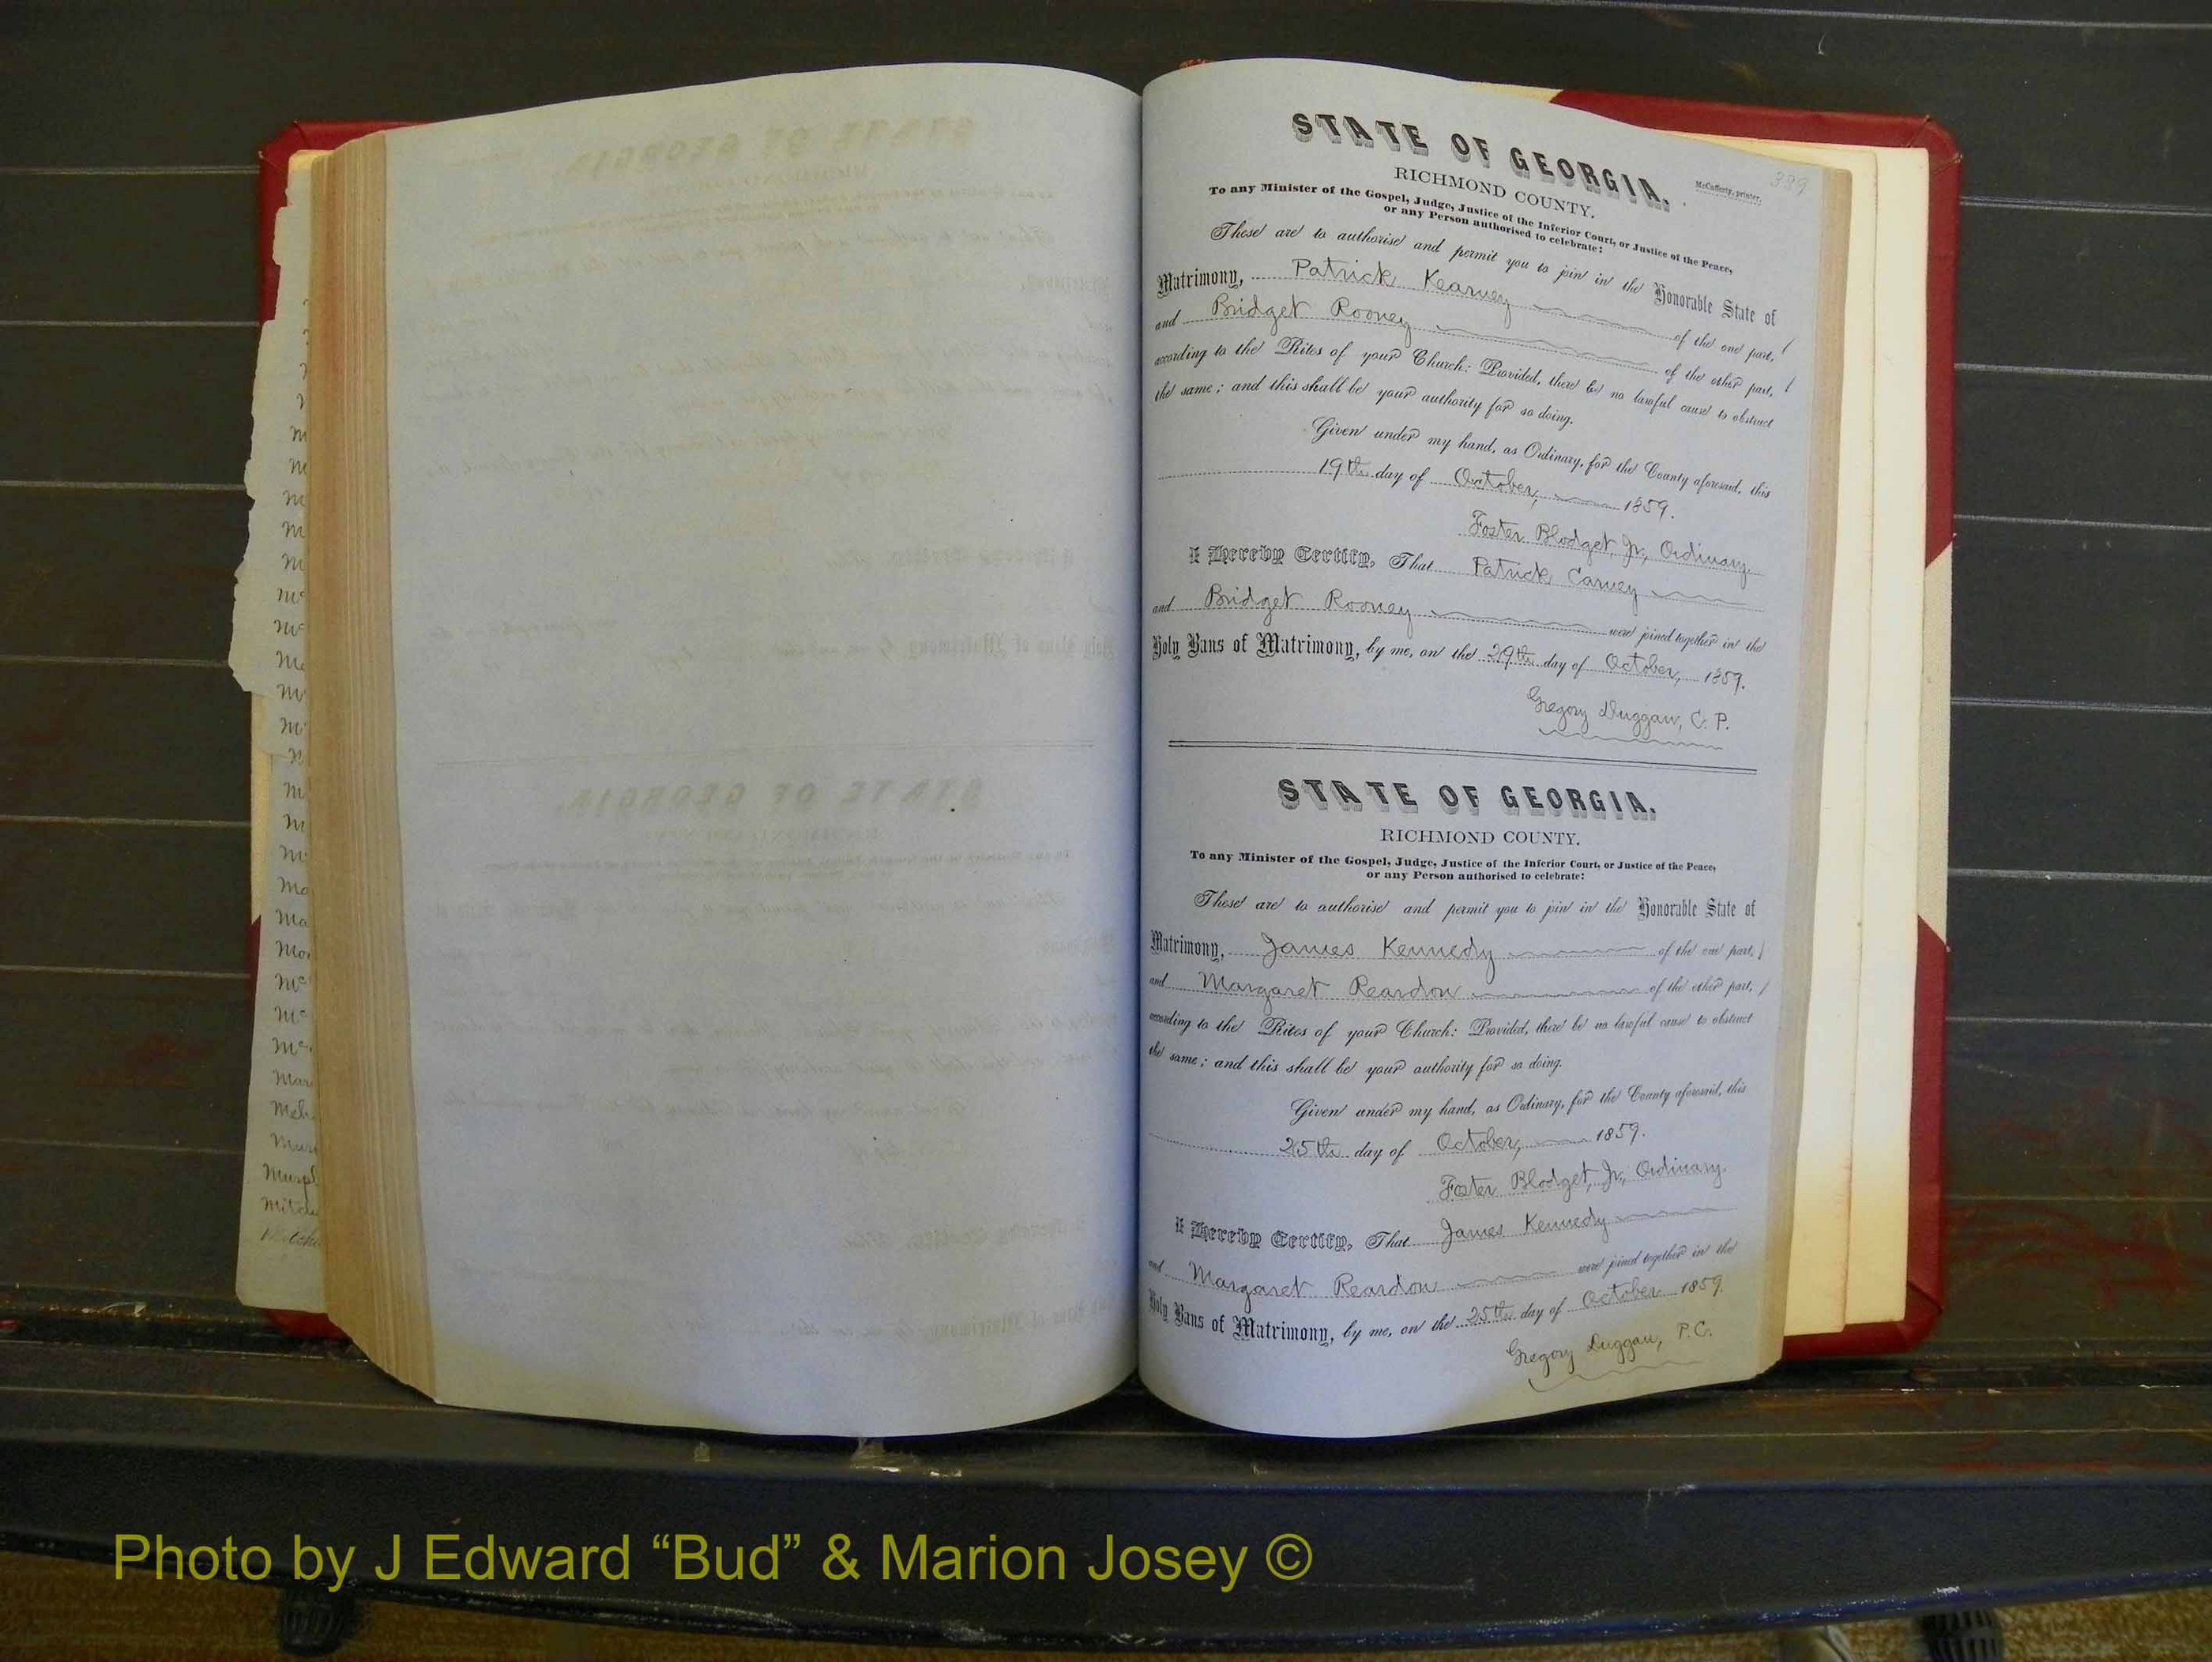 m
m
m
m
m
m
Mo
Ma
Mar
Murpl
Mitch
339
STATE OF GEORGIA.
McCafferty, printer.
RICHMOND COUNTY.
To any Minister of the Gospel, Judge, Justice of the Inferior Court, or Justice of the Peace,
or any Person authorised to celebrate:
These are to authorise and permit you to join in the Honorable State of
Matrimony, Patrick Kearney of the one part,
and Bridget Rooney of the other part,
according to the Rites of your Church: Provided, there be no lawful cause to obstruct
the same; and this shall be your authority for so doing.
Given under my hand, as Ordinary, for the County aforesaid, this
19th day of October, 1859.
Foster Blodget, Jr., Ordinary.
I Hereby Certify, That Patrick Carney
and Bridget Rooney were joined together in the
Holy Bans of Matrimony, by me, on the 29th day of October, 1859.
Gregory Duggan, C. P.
STATE OF GEORGIA.
RICHMOND COUNTY.
To any Minister of the Gospel, Judge, Justice of the Inferior Court, or Justice of the Peace,
or any Person authorised to celebrate:
These are to authorise and permit you to join in the Honorable State of
Matrimony, James Kennedy of the one part,
and Margaret Reardon of the other part,
according to the Rites of your Church: Provided, there be no lawful cause to obstruct
the same; and this shall be your authority for so doing.
Given under my hand, as Ordinary, for the County aforesaid, this
25th day of October, 1859.
Foster Blodget, Jr., Ordinary.
I Hereby Certify, That James Kennedy
and Margaret Reardon were joined together in the
Holy Bans of Matrimony, by me, on the 25th day of October 1859.
Gregory Duggan, P. C.
Photo by J Edward “Bud” & Marion Josey ©